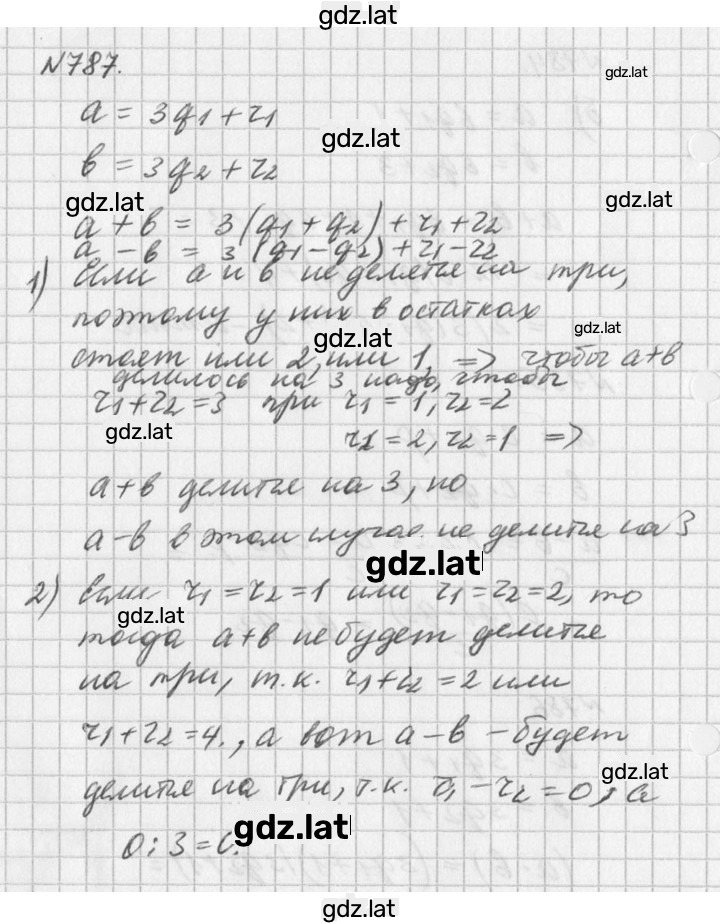 gdz.lat
N787.
gdz.lat
a = 3q1 + r1
gdz.lat
b = 3q2 + r2
gdz.lat
gdz.lat
a + b = 3(q1 + q2) + r1 + r2
a - b = 3(q1 - q2) + r1 - r2
1) Если a и b не делятся на три,
поэтому у них в остатках
gdz.lat
gdz.lat
стоят или 2, или 1, => чтобы a+b
делилось на 3 надо, чтобы
r1 + r2 = 3 при r1 = 1, r2 = 2
gdz.lat
r1 = 2, r2 = 1 =>
a + b делится на 3, но
a - b в этом случае не делится на 3
gdz.lat
2) Если r1 = r2 = 1 или r1 = r2 = 2, то
gdz.lat
тогда a+b не будет делится
на три, т.к. r1 + r2 = 2 или
r1 + r2 = 4., а вот a - b - будет
gdz.lat
делится на три, т.к. r1 - r2 = 0, а
gdz.lat
0 : 3 = 0.
gdz.lat